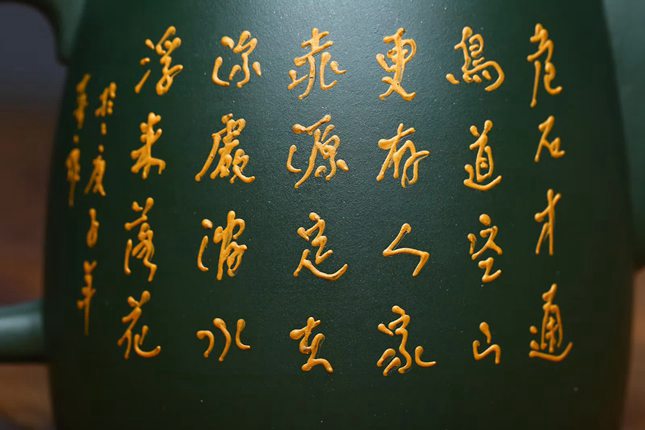 危石才通
鳥道空山
更有人家
桃源定在
深處澗水
浮來落花
庚子年